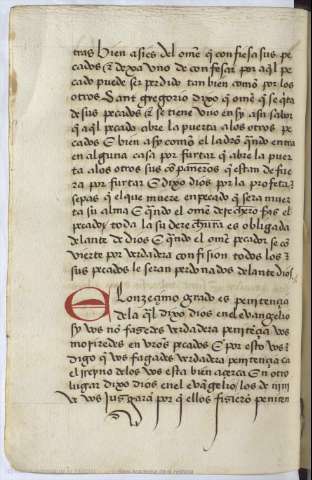 tras bien asi es del ome q̄ confiesa sus pe
cados ⁊ dexa uno de confesar por aq̄l pe
cado puede ser perdido tan bien como por los
otros. Sant gregorio dixo q̄ ome q̄ se q̄ta
de sus pecados ⁊ se tiene uno en sy a su sabor
q̄ aq̄l pecado abre la puerta a los otros pe
cados E bien asy como el ladrō q̄ndo entra
en alguna casa por furtar q̄ abre la puer
ta a los otros sus cōpañeros q̄ estan de fue
ra por furtar E dixo dios por la profeta
sepas q̄ el que muere en pecado q̄ sera muer
ta su alma E q̄ndo el ome derechero fas el
pecado toda la su derechura es obligada
delante de dios E q̄ndo el ome pecador se cō
vierte por verdadera confision todos los
sus pecados le seran perdonados delante dios
El onzeҫmo grado es penitenҫia
de la q̄l dixo dios en el evangelio
sy vos nō fasedes verdadera penitēҫia vos
moriredes en vr̄os pecados E por esto vos
digo q̄ vos fagades verdadera penitenҫia ca
el reyno de los vos esta bien açerca E en otro
lugar dixo dios en el evāgelio, los de
ve vos jusgara por q̄ ellos fisierō peniten
Real Academia de la Historia